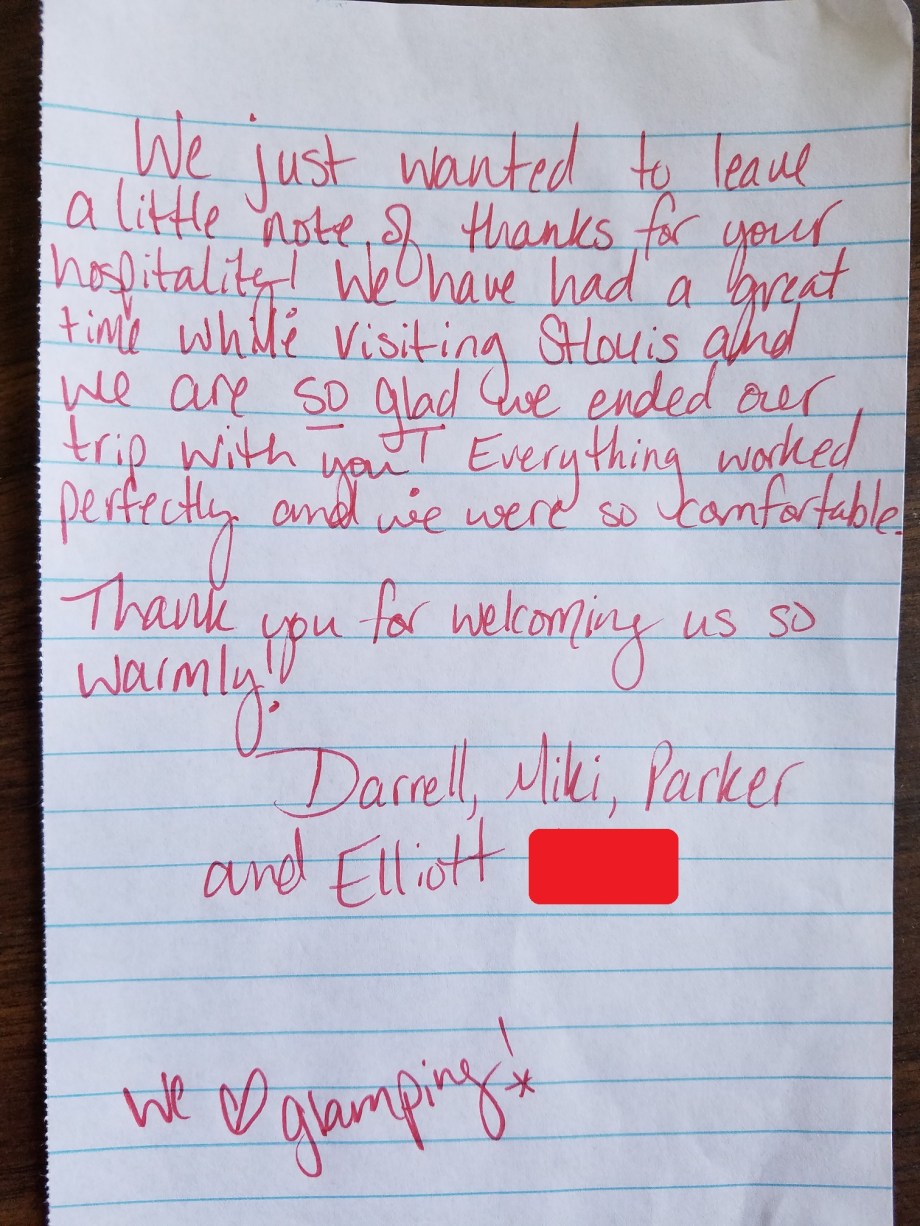 We just wanted to leave
a little note of thanks for your
hospitality! We have had a great
time while visiting St Louis and
we are so glad we ended our
trip with you! Everything worked
perfectly and we were so comfortable.
Thank you for welcoming us so
warmly!
Darrell, Miki, Parker
and Elliott
We ♡ glamping!*